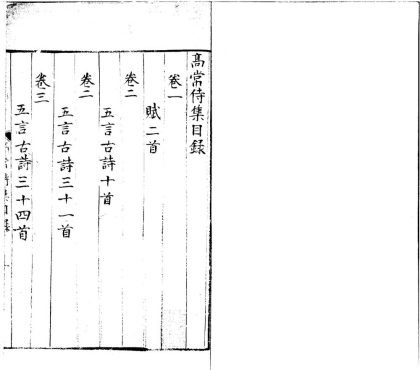 髙常侍集目録
卷一
賦二首
卷二
五言古詩十首
卷二
五言古詩三十一首
卷三
五言古詩三十四首